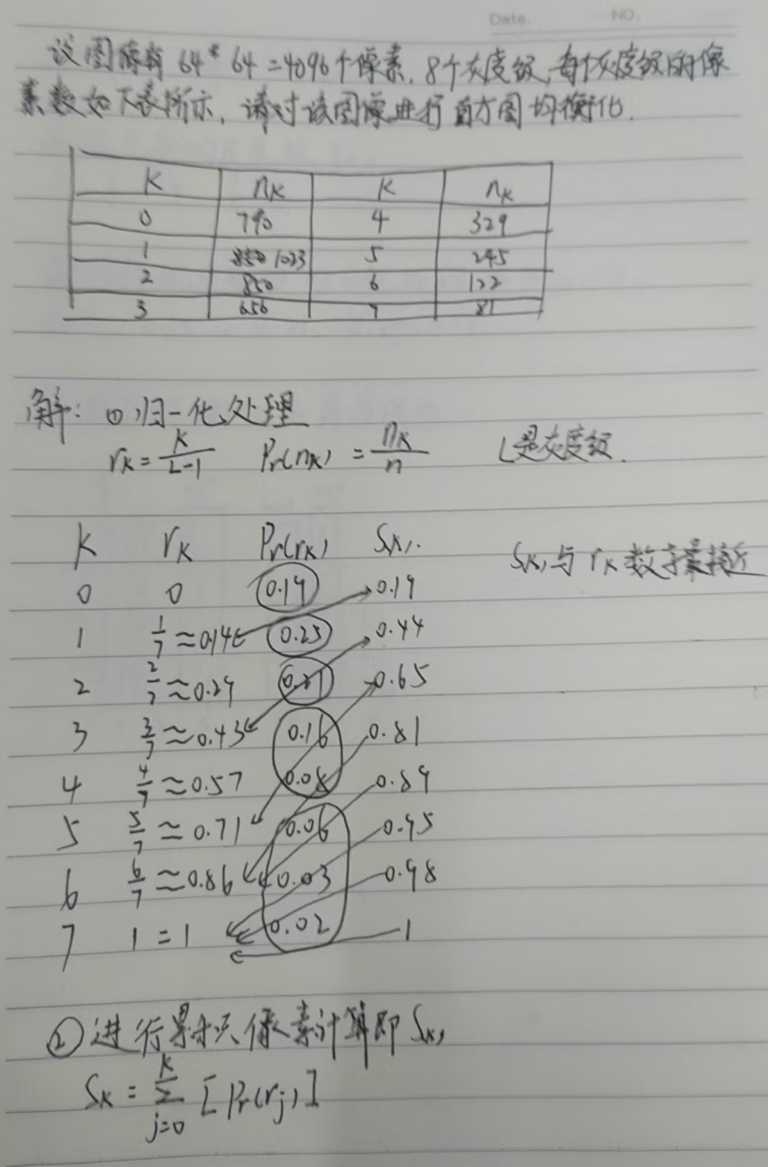 Date. NO.
设图像有 64*64=4096个像素, 8个灰度级,每个灰度级的像
素数如下表所示, 请对该图像进行直方图均衡化.
K nK K nK
0 790 4 329
1 1023 5 245
2 850 6 122
3 656 7 81
解: ①归一化处理
rK=K/L-1 Pr(nK)=nK/n L是灰度级.
K rK Pr(rK) SK1.
SK1与rK数字最接近
0 0 0.19 0.19
1 1/7≈0.14 0.25 0.44
2 2/7≈0.29 0.21 0.65
3 3/7≈0.43 0.16 0.81
4 4/7≈0.57 0.08 0.89
5 5/7≈0.71 0.06 0.95
6 6/7≈0.86 0.03 0.98
7 1=1 0.02 1
②进行累积像素计算即SK1
SK=∑[Pr(rj)]
K
j=0